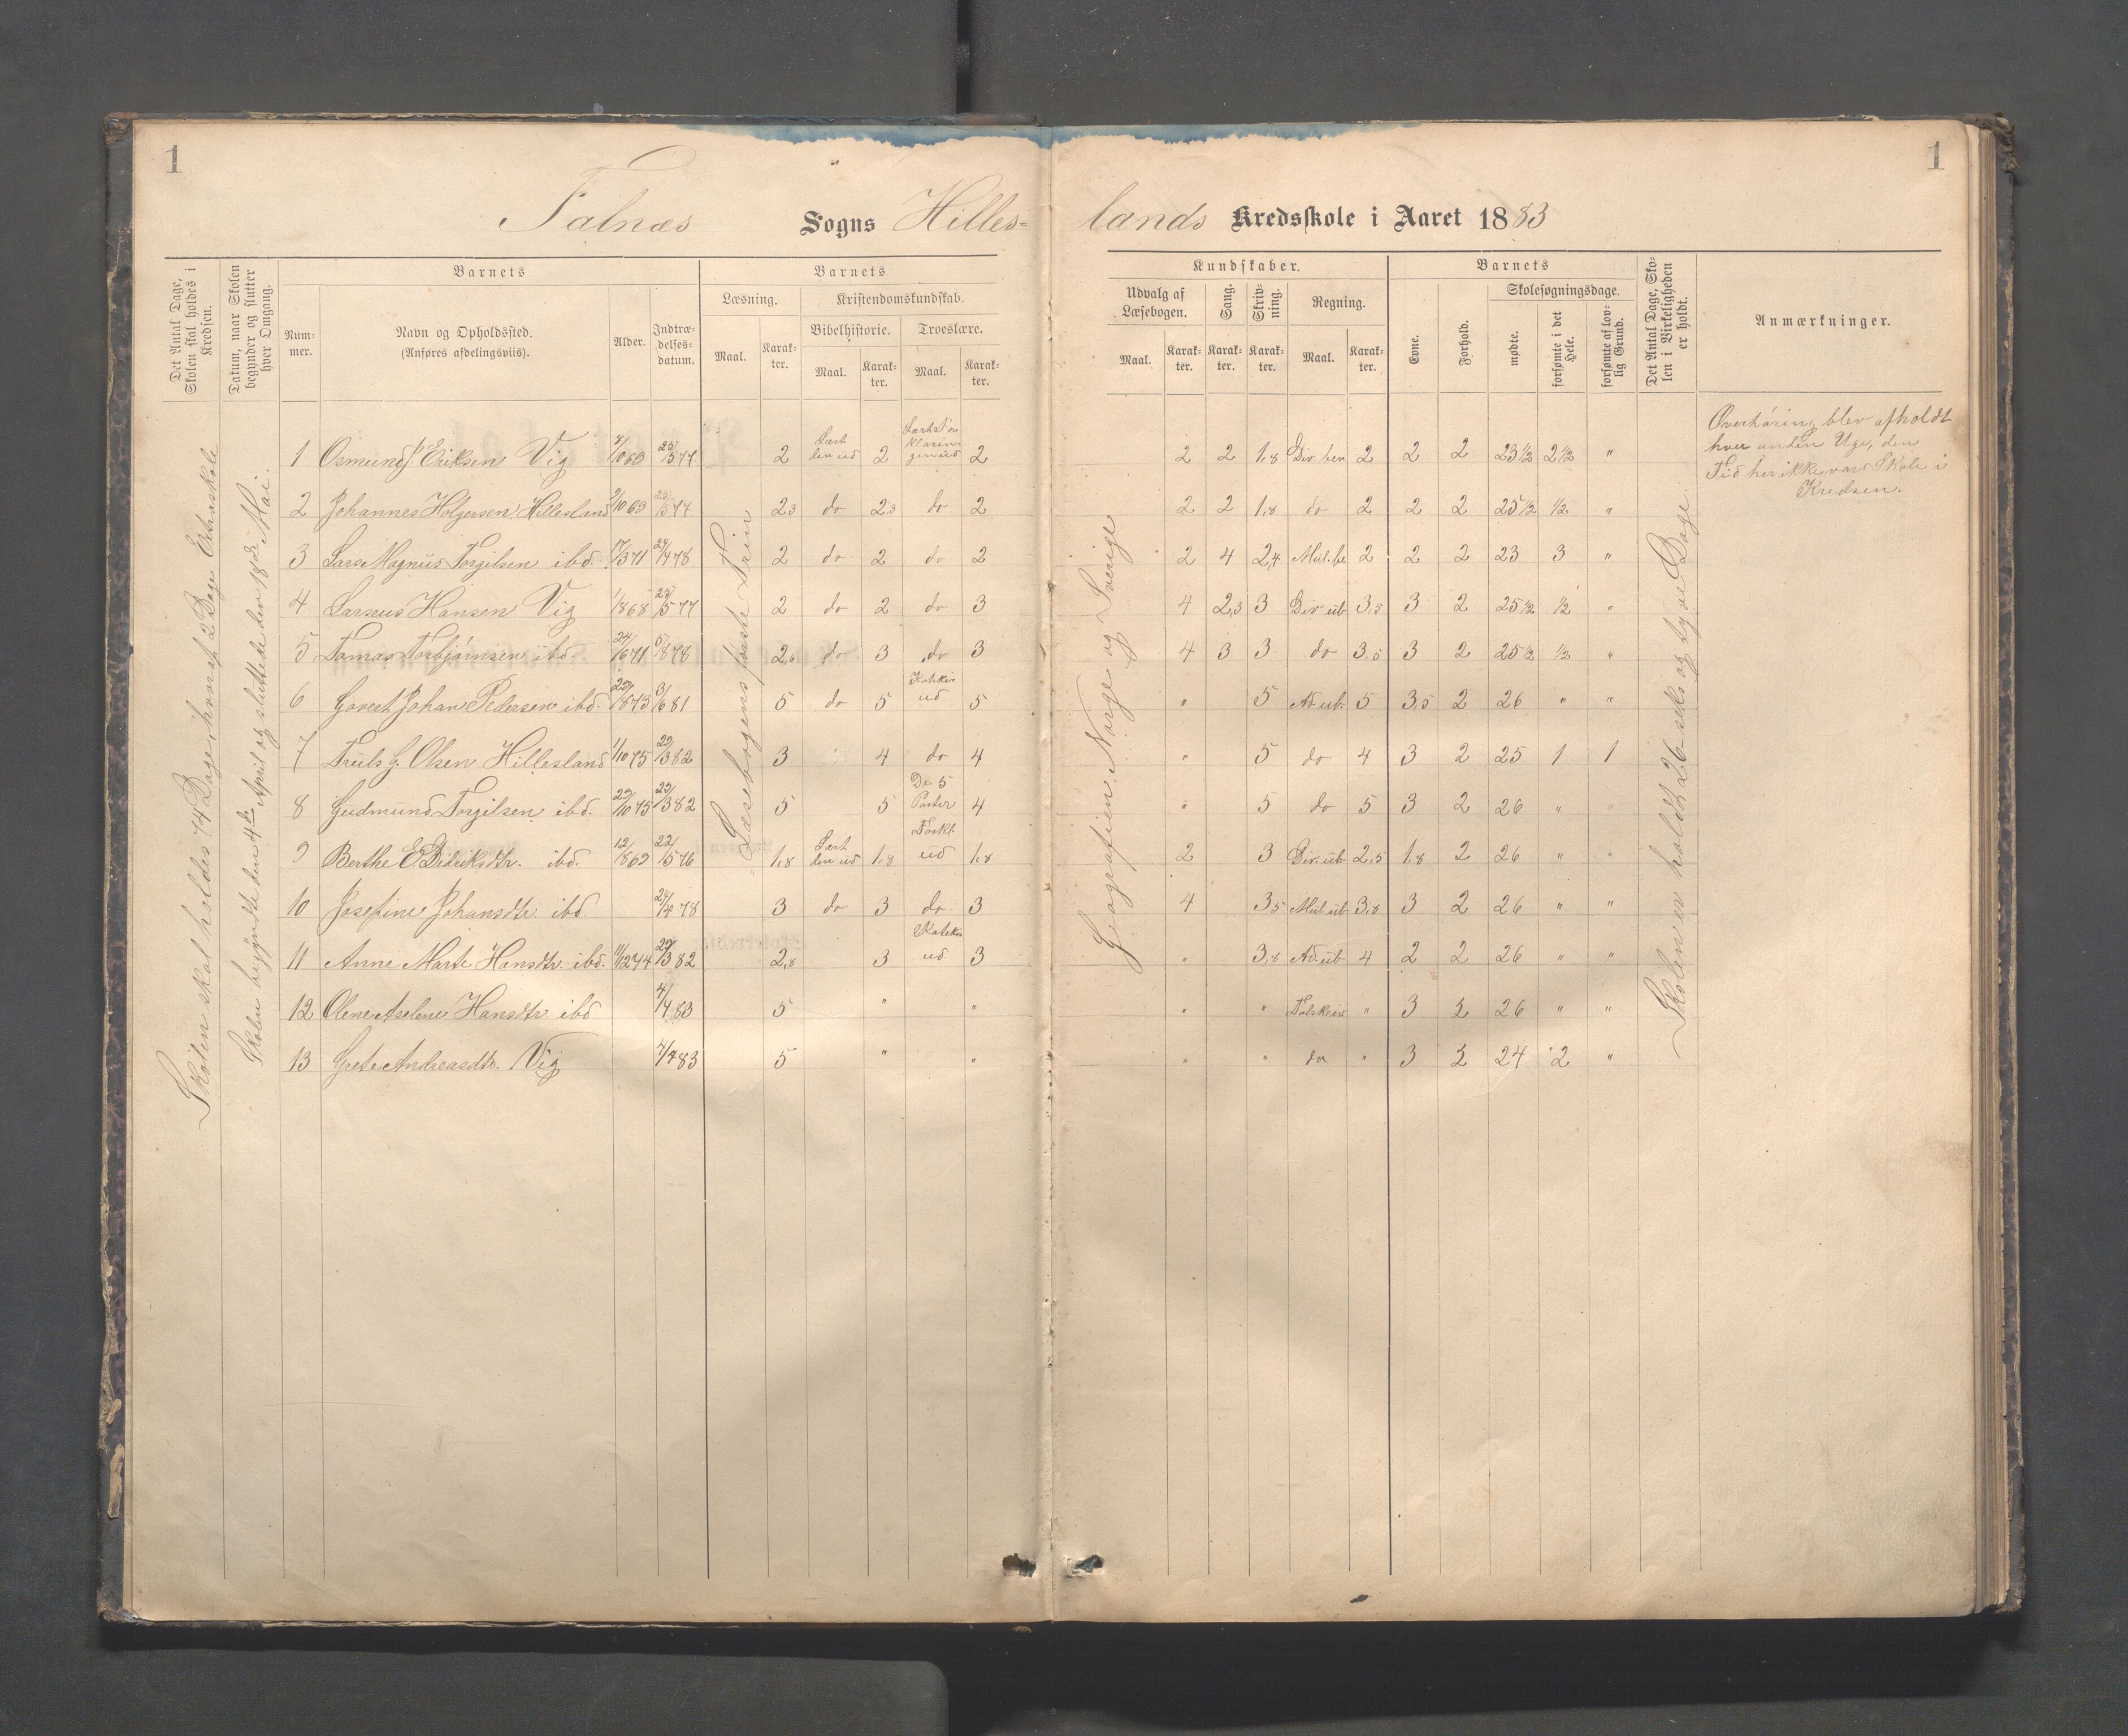 1
1
Falnæs Sogns Hilleslands Kredsskole i Aaret 1883
Det Antal Dage, Skolen skal holdes i Kredsen.
Datum, naar Skolen begynder og slutter hver Omgang.
Barnets
Nummer.
Navn og Opholdssted.
(Anføres afdelingsviis).
Alder.
Indtrædelsesdatum.
Barnets
Læsning.
Kristendomskundskab.
Bibelhistorie.
Troeslære.
Maal.
Karakter.
Maal.
Karakter.
Maal.
Karakter.
Kundskaber.
Udvalg af Læsebogen.
Sang.
Skrivning.
Regning.
Maal.
Karakter.
Karakter.
Karakter.
Maal.
Karakter.
Barnets
Evne.
Forhold.
Skolesøgningsdage.
mødte.
forsømte i det Hele.
forsømte af lovlig Grund.
Det Antal Dage, Skolen i Virkeligheden er holdt.
Anmærkninger.
Skolen skal holdes 74 Dage, hvoraf 2 Dage
Skolen begyndte den 4de April og sluttede den 18de Mai.
Læsebogens første Trin
Geografien: Norge og Sverige
Skolen er holdt 26 seks og tyve Dage
Overhøring blev afholdt
hver anden Uge, den
Tid her ikke var Skole i
Kredsen.
1 Osmund J. Eriksen Vig 25/5 77 2 Lært den ud 2 Lært Forklaringen ud 2 2 2 1,8 Div. ben 2 2 2 23 1/2 2 1/2 "
2 Johannes Holgersen Hillesland 2,3 do 2,3 do 2 2 2 1,8 do 2 2 2 25 1/2 1/2 "
3 Lars Magnus Torgilsen ibd. 17/3 71 24/4 78 2 do 2 do 2 2 4 2,4 Mul. be 2 2 2 23 3 "
4 Larseus Hansen Vig 1/8 68 2 do 2 do 3 4 2,3 3 Div ub 3,5 3 2 25 1/2 1/2 "
5 Tomas Torbjørnsen ibd. 24/6 71 do 3 do 3 4 3 3 do 3,5 3 2 25 1/2 1/2 "
6 Govert Johan Pedersen ibd. 3/6 81 5 do 5 Katekis ud 5 " 5 Ad. ub. 5 3,5 2 26 " "
7 Truls G. Olsen Hillesland 1/10 75 29/3 82 3 4 do 4 " 5 do 4 3 2 25 1 1
8 Gudmund Torgilsen ibd. 29/10 75 29/3 82 5 5 De 5 Parter 4 " 5 do 5 3 2 26 " "
9 Berthe E. Didriksdtr. ibd. 12/8 69 22/5 76 1,8 Lært den ud 1,8 Forkl. ud 1,8 2 3 Div. ub 2,5 1,8 2 26 " "
10 Josefine Johansdtr. ibd. 24/4 78 3 do 3 do 3 4 3,5 Mul. ub 3,8 3 2 26 " "
11 Anne Marte Hansdtr. ibd. 11/12 74 29/3 82 2,8 3 Katekis ud 3 " 3,8 Ad. ub 4 2 2 26 " "
12 Olene Aselene Hansdtr. ibd 4/4 83 5 " " " " " 3 2 26 " "
13 Grete Andreasdtr. Vig 4/4 83 5 " " " " do " 3 2 24 2 "